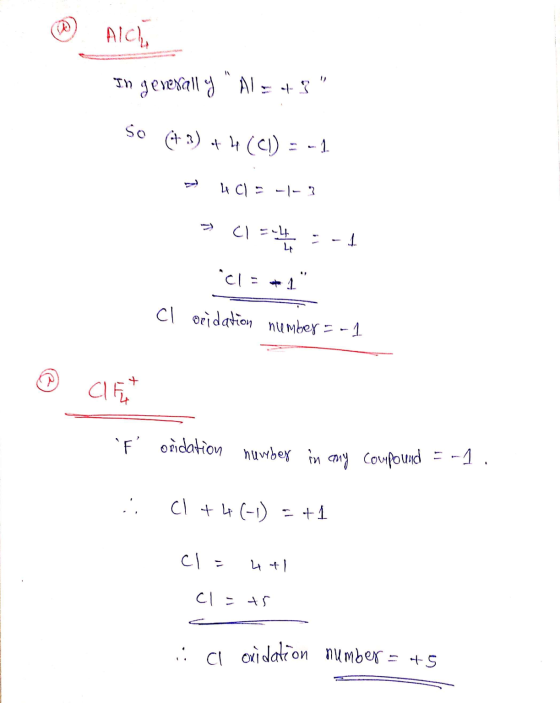 (a) AlCl₄⁻
In generally " Al = + 3 "
So (+3) + 4 (Cl) = -1
⇒ 4 Cl = -1-3
⇒ Cl = -4/4 = -1
"Cl = -1"
Cl oxidation number = -1
ClF₄⁺
'F' oxidation number in any compound = -1 .
∴ Cl + 4 (-1) = +1
Cl = 4 +1
Cl = +5
∴ Cl oxidation number = +5